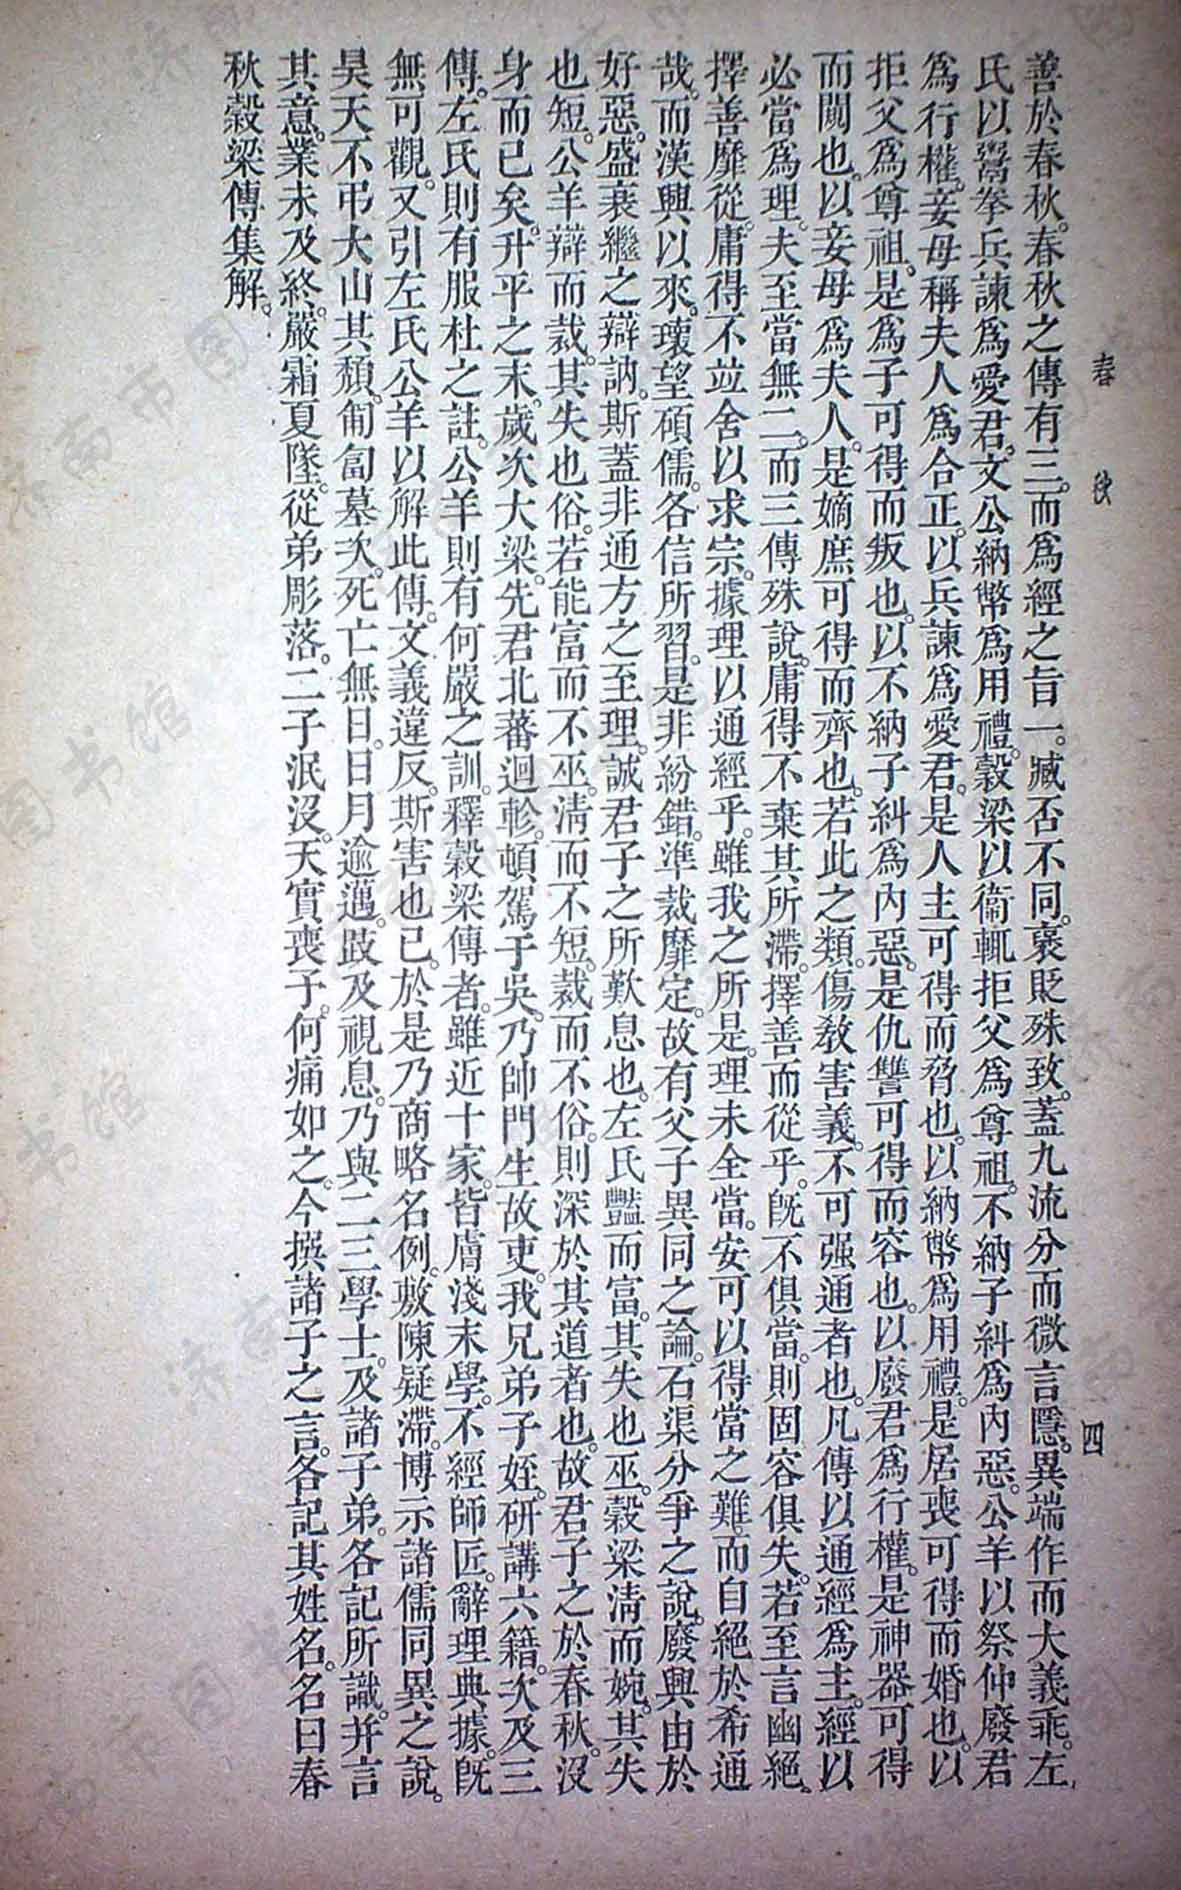 春秋
四
善於春秋。春秋之傳有三。而爲經之旨一。臧否不同。襃貶殊致。蓋九流分而微言隱。異端作而大義乖。左
氏以鬻拳兵諫爲愛君。文公納幣爲用禮。穀梁以衞輒拒父爲尊祖。不納子糾爲內惡。公羊以祭仲廢君
爲行權。妾母稱夫人爲合正。以兵諫爲愛君。是人主可得而脅也。以納幣爲用禮。是居喪可得而婚也。以
拒父爲尊祖。是爲子可得而叛也。以不納子糾爲內惡。是仇讐可得而容也。以廢君爲行權。是神器可得
而闚也。以妾母爲夫人。是嫡庶可得而齊也。若此之類。傷敎害義。不可强通者也。凡傳以通經爲主。經以
必當爲理。夫至當無二。而三傳殊說。庸得不棄其所滯。擇善而從乎。旣不俱當。則固容俱失。若至言幽絕。
擇善靡從。庸得不竝舍以求宗。據理以通經乎。雖我之所是。理未全當。安可以得當之難。而自絕於希通
哉。而漢興以來。瓌望碩儒。各信所習。是非紛錯。準裁靡定。故有父子異同之論。石渠分爭之說。廢興由於
好惡。盛衰繼之辯訥。斯蓋非通方之至理。誠君子之所歎息也。左氏豔而富。其失也巫。穀梁淸而婉。其失
也短。公羊辯而裁。其失也俗。若能富而不巫。淸而不短。裁而不俗。則深於其道者也。故君子之於春秋。沒
身而已矣。升平之末。歲次大梁。先君北蕃迴軫。頓駕于吳。乃帥門生故吏。我兄弟子姪。研講六籍。次及三
傳。左氏則有服杜之註。公羊則有何嚴之訓。釋穀梁傳者。雖近十家。皆膚淺末學。不經師匠。辭理典據。旣
無可觀。又引左氏公羊以解此傳。文義違反。斯害也已。於是乃商略名例。敷陳疑滯。博示諸儒同異之說。
昊天不弔。大山其頹。匍匐墓次。死亡無日。日月逾邁。跂及視息。乃與二三學士。及諸子弟。各記所識。幷言
其意。業未及終。嚴霜夏墜。從弟彫落。二子泯沒。天實喪予。何痛如之。今撰諸子之言。各記其姓名。名曰春
秋穀梁傳集解。